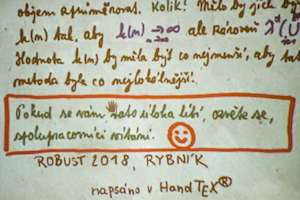 objem a průměrnost. Kolik? Mělo by jich být
k(n) tak, aby k(n) → ∞ ale zároveň λᵈ(U
n→∞
Hodnota k(n) by měla být co nejmenší, aby tato
metoda byla co nejlokálnější.
Pokud se vám tato úloha líbí, ozvěte se,
spolupracovníci vítáni.
ROBUST 2018, RYBNÍK
napsáno v HandTEX®